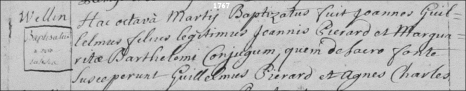 1767
Wellin
Hac octava Martij Baptizatus fuit Joannes Guil-
lelmus filius legitimus Joannis Piérard et Marga-
ritæ Barthelemi Conjugum, quem de sacro fonte
susceperunt Guillelmus Piérard et Agnes Charles